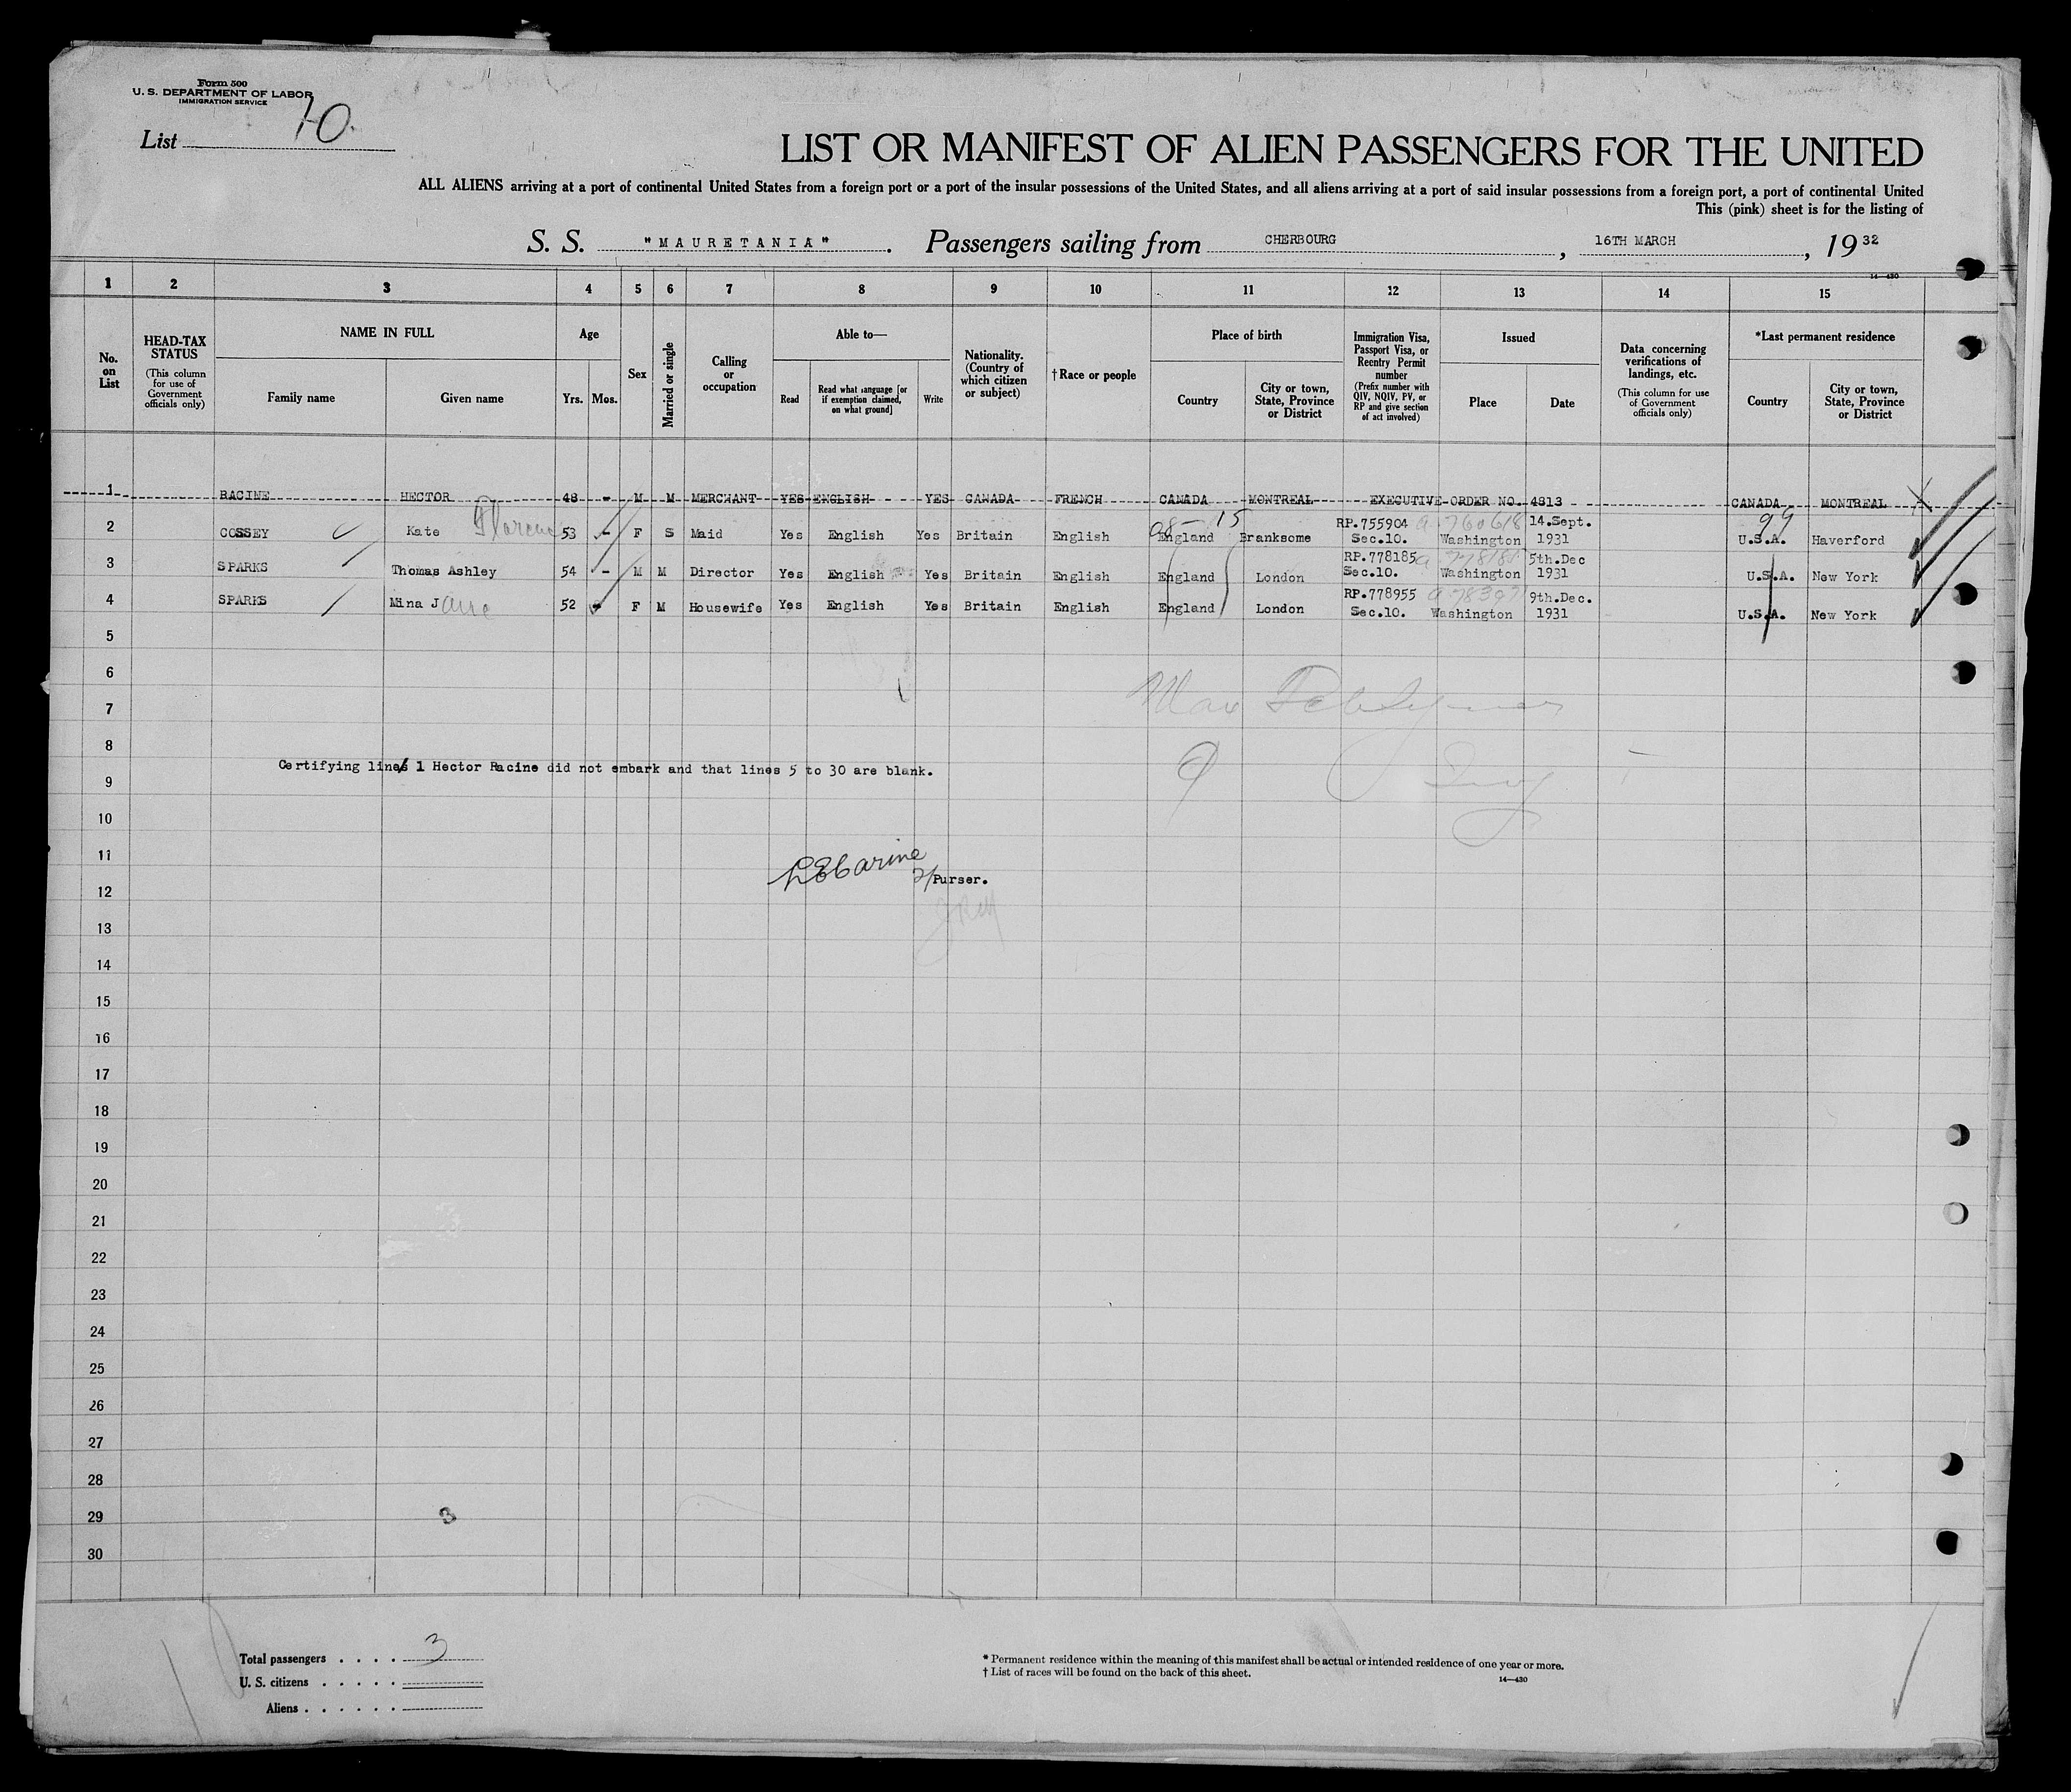 Form 500
U. S. DEPARTMENT OF LABOR
IMMIGRATION SERVICE
List 10.
LIST OR MANIFEST OF ALIEN PASSENGERS FOR THE UNITED
ALL ALIENS arriving at a port of continental United States from a foreign port or a port of the insular possessions of the United States, and all aliens arriving at a port of said insular possessions from a foreign port, a port of continental United
This (pink) sheet is for the listing of
S. S. "MAURETANIA". Passengers sailing from CHERBOURG, 16TH MARCH, 1932
14—430
1 2 3 4 5 6 7 8 9 10 11 12 13 14 15
No. on List
HEAD-TAX STATUS (This column for use of Government officials only)
NAME IN FULL
Family name
Given name
Age
Yrs.
Mos.
Sex
Married or single
Calling or occupation
Able to—
Read
Read what language [or if exemption claimed, on what ground]
Write
Nationality. (Country of which citizen or subject)
†Race or people
Place of birth
Country
City or town, State, Province or District
Immigration Visa, Passport Visa, or Reentry Permit number (Prefix number with QIV, NQIV, PV, or RP and give section of act involved)
Issued
Place
Date
Data concerning verifications of landings, etc. (This column for use of Government officials only)
*Last permanent residence
Country
City or town, State, Province or District
1 RACINE HECTOR 48 - M M MERCHANT YES ENGLISH YES CANADA FRENCH CANADA MONTREAL EXECUTIVE ORDER NO. 4813 CANADA MONTREAL
98-15 99
2 COSSEY Kate Florence 53 - F S Maid Yes English Yes Britain English England Branksome RP.755904 Sec.10. a 760618 Washington 14.Sept. 1931 U.S.A. Haverford
3 SPARKS Thomas Ashley 54 - M M Director Yes English Yes Britain English England London RP.778185 Sec.10. Washington 5th.Dec 1931 U.S.A. New York
4 SPARKS Mina Jane 52 - F M Housewife Yes English Yes Britain English England London RP.778955 Sec.10. Washington 9th.Dec. 1931 U.S.A. New York
5
6
7
8
Certifying line 1 Hector Racine did not embark and that lines 5 to 30 are blank.
9
10
11
12 Purser.
13
14
15
16
17
18
19
20
21
22
23
24
25
26
27
28
29 3
30
Total passengers . . . . 3
U. S. citizens . . . . .
Aliens . . . . . .
* Permanent residence within the meaning of this manifest shall be actual or intended residence of one year or more.
† List of races will be found on the back of this sheet.
14—430